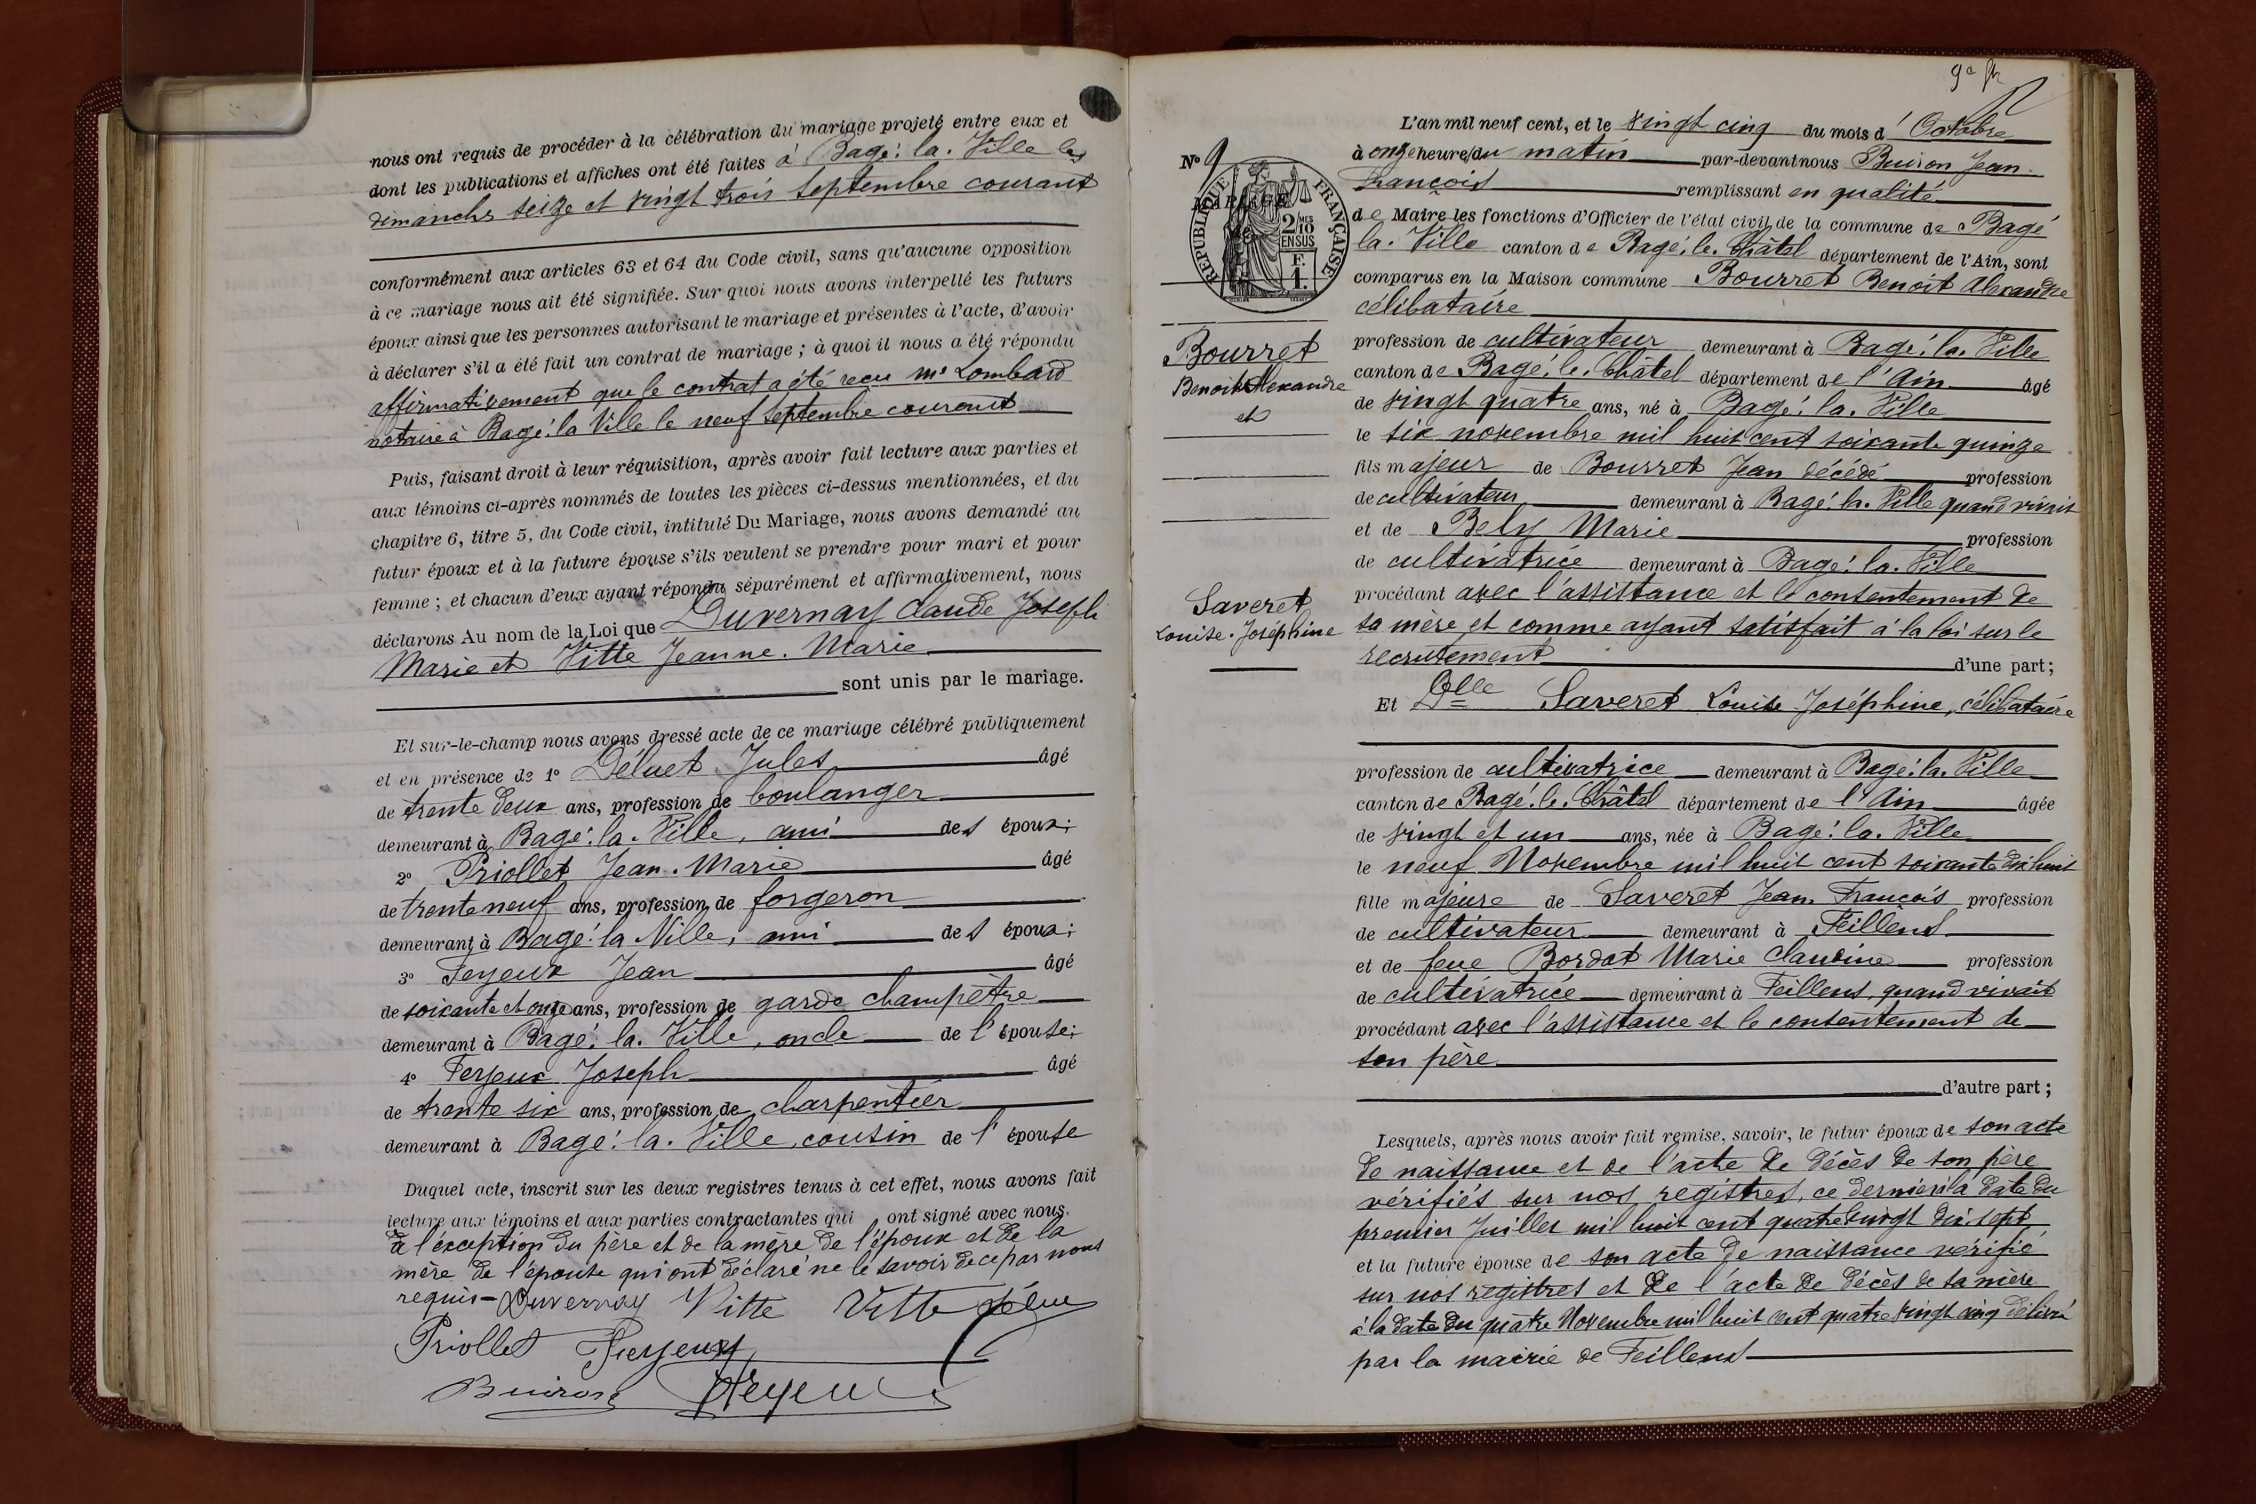 nous ont requis de procéder à la célébration du mariage projeté entre eux et
dont les publications et affiches ont été faites à Bagé-la-Ville les
dimanches seize et vingt trois septembre courant
conformément aux articles 63 et 64 du Code civil, sans qu'aucune opposition
à ce mariage nous ait été signifiée. Sur quoi nous avons interpellé les futurs
époux ainsi que les personnes autorisant le mariage et présentes à l'acte, d'avoir
à déclarer s'il a été fait un contrat de mariage ; à quoi il nous a été répondu
affirmativement que le contrat a été reçu Me Lombard
notaire à Bagé-la Ville le neuf septembre courant
Puis, faisant droit à leur réquisition, après avoir fait lecture aux parties et
aux témoins ci-après nommés de toutes les pièces ci-dessus mentionnées, et du
chapitre 6, titre 5, du Code civil, intitulé Du Mariage, nous avons demandé au
futur époux et à la future épouse s'ils veulent se prendre pour mari et pour
femme ; et chacun d'eux ayant répondu séparément et affirmativement, nous
déclarons Au nom de la Loi que Duvernay Claude Joseph
Marie et Vitte Jeanne-Marie
sont unis par le mariage.
Et sur-le-champ nous avons dressé acte de ce mariage célébré publiquement
et en présence de 1° Déluet Jules âgé
de trente deux ans, profession de boulanger
demeurant à Bagé-la-Ville, ami des époux;
2° Priollet Jean-Marie âgé
de trente neuf ans, profession de forgeron
demeurant à Bagé-la Ville, ami des époux;
3° Feyeux Jean âgé
de soixante et onze ans, profession de garde champêtre
demeurant à Bagé-la-Ville, oncle de l'épouse;
4° Feyeux Joseph âgé
de trente six ans, profession de charpentier
demeurant à Bagé-la-Ville, cousin de l'épouse
Duquel acte, inscrit sur les deux registres tenus à cet effet, nous avons fait
lecture aux témoins et aux parties contractantes qui ont signé avec nous.
à l'exception du père et de la mère de l'époux et de la
mère de l'épouse qui ont déclaré ne le savoir de ce par nous
requis - Duvernay Vitte Vitte Déluet
Priollet Feyeux
Buiron Feyeux
9e fr
N° 9
MARIAGE
RÉPUBLIQUE FRANÇAISE
2/10 MES
EN SUS
F.
1.
Bourret
Benoit Alexandre
et
Saveret
Louise-Joséphine
L'an mil neuf cent, et le vingt cinq du mois d'Octobre
à onze heures du matin par-devant nous Buiron Jean-
François remplissant en qualité
de Maire les fonctions d'Officier de l'état civil de la commune de Bagé
la-Ville canton de Bagé-le-Châtel département de l'Ain, sont
comparus en la Maison commune Bourret Benoit Alexandre
célibataire
profession de cultivateur demeurant à Bagé-la-Ville
canton de Bagé-le-Châtel département de l'Ain âgé
de vingt quatre ans, né à Bagé-la-Ville
le six novembre mil huit cent soixante quinze
fils majeur de Bourret Jean décédé profession
de cultivateur demeurant à Bagé-la-Ville quand vivait
et de Bely Marie profession
de cultivatrice demeurant à Bagé-la-Ville
procédant avec l'assistance et le consentement de
sa mère et comme ayant satisfait à la loi sur le
recrutement d'une part;
Et Dlle Saveret Louise Joséphine, célibataire
profession de cultivatrice demeurant à Bagé-la-Ville
canton de Bagé-le-Châtel département de l'Ain âgée
de vingt et un ans, née à Bagé-la-Ville
le neuf Novembre mil huit cent soixante dix huit
fille majeure de Saveret Jean François profession
de cultivateur demeurant à Feillens
et de feue Bordat Marie Claudine profession
de cultivatrice demeurant à Feillens, quand vivait
procédant avec l'assistance et le consentement de
son père
d'autre part ;
Lesquels, après nous avoir fait remise, savoir, le futur époux de son acte
de naissance et de l'acte de décès de son père
vérifiés sur nos registres, ce dernier à la date du
premier Juillet mil huit cent quatre vingt dix-sept
et la future épouse de son acte de naissance vérifié
sur nos registres et de l'acte de décès de sa mère
à la date du quatre Novembre mil huit cent quatre vingt cinq délivré
par la mairie de Feillens